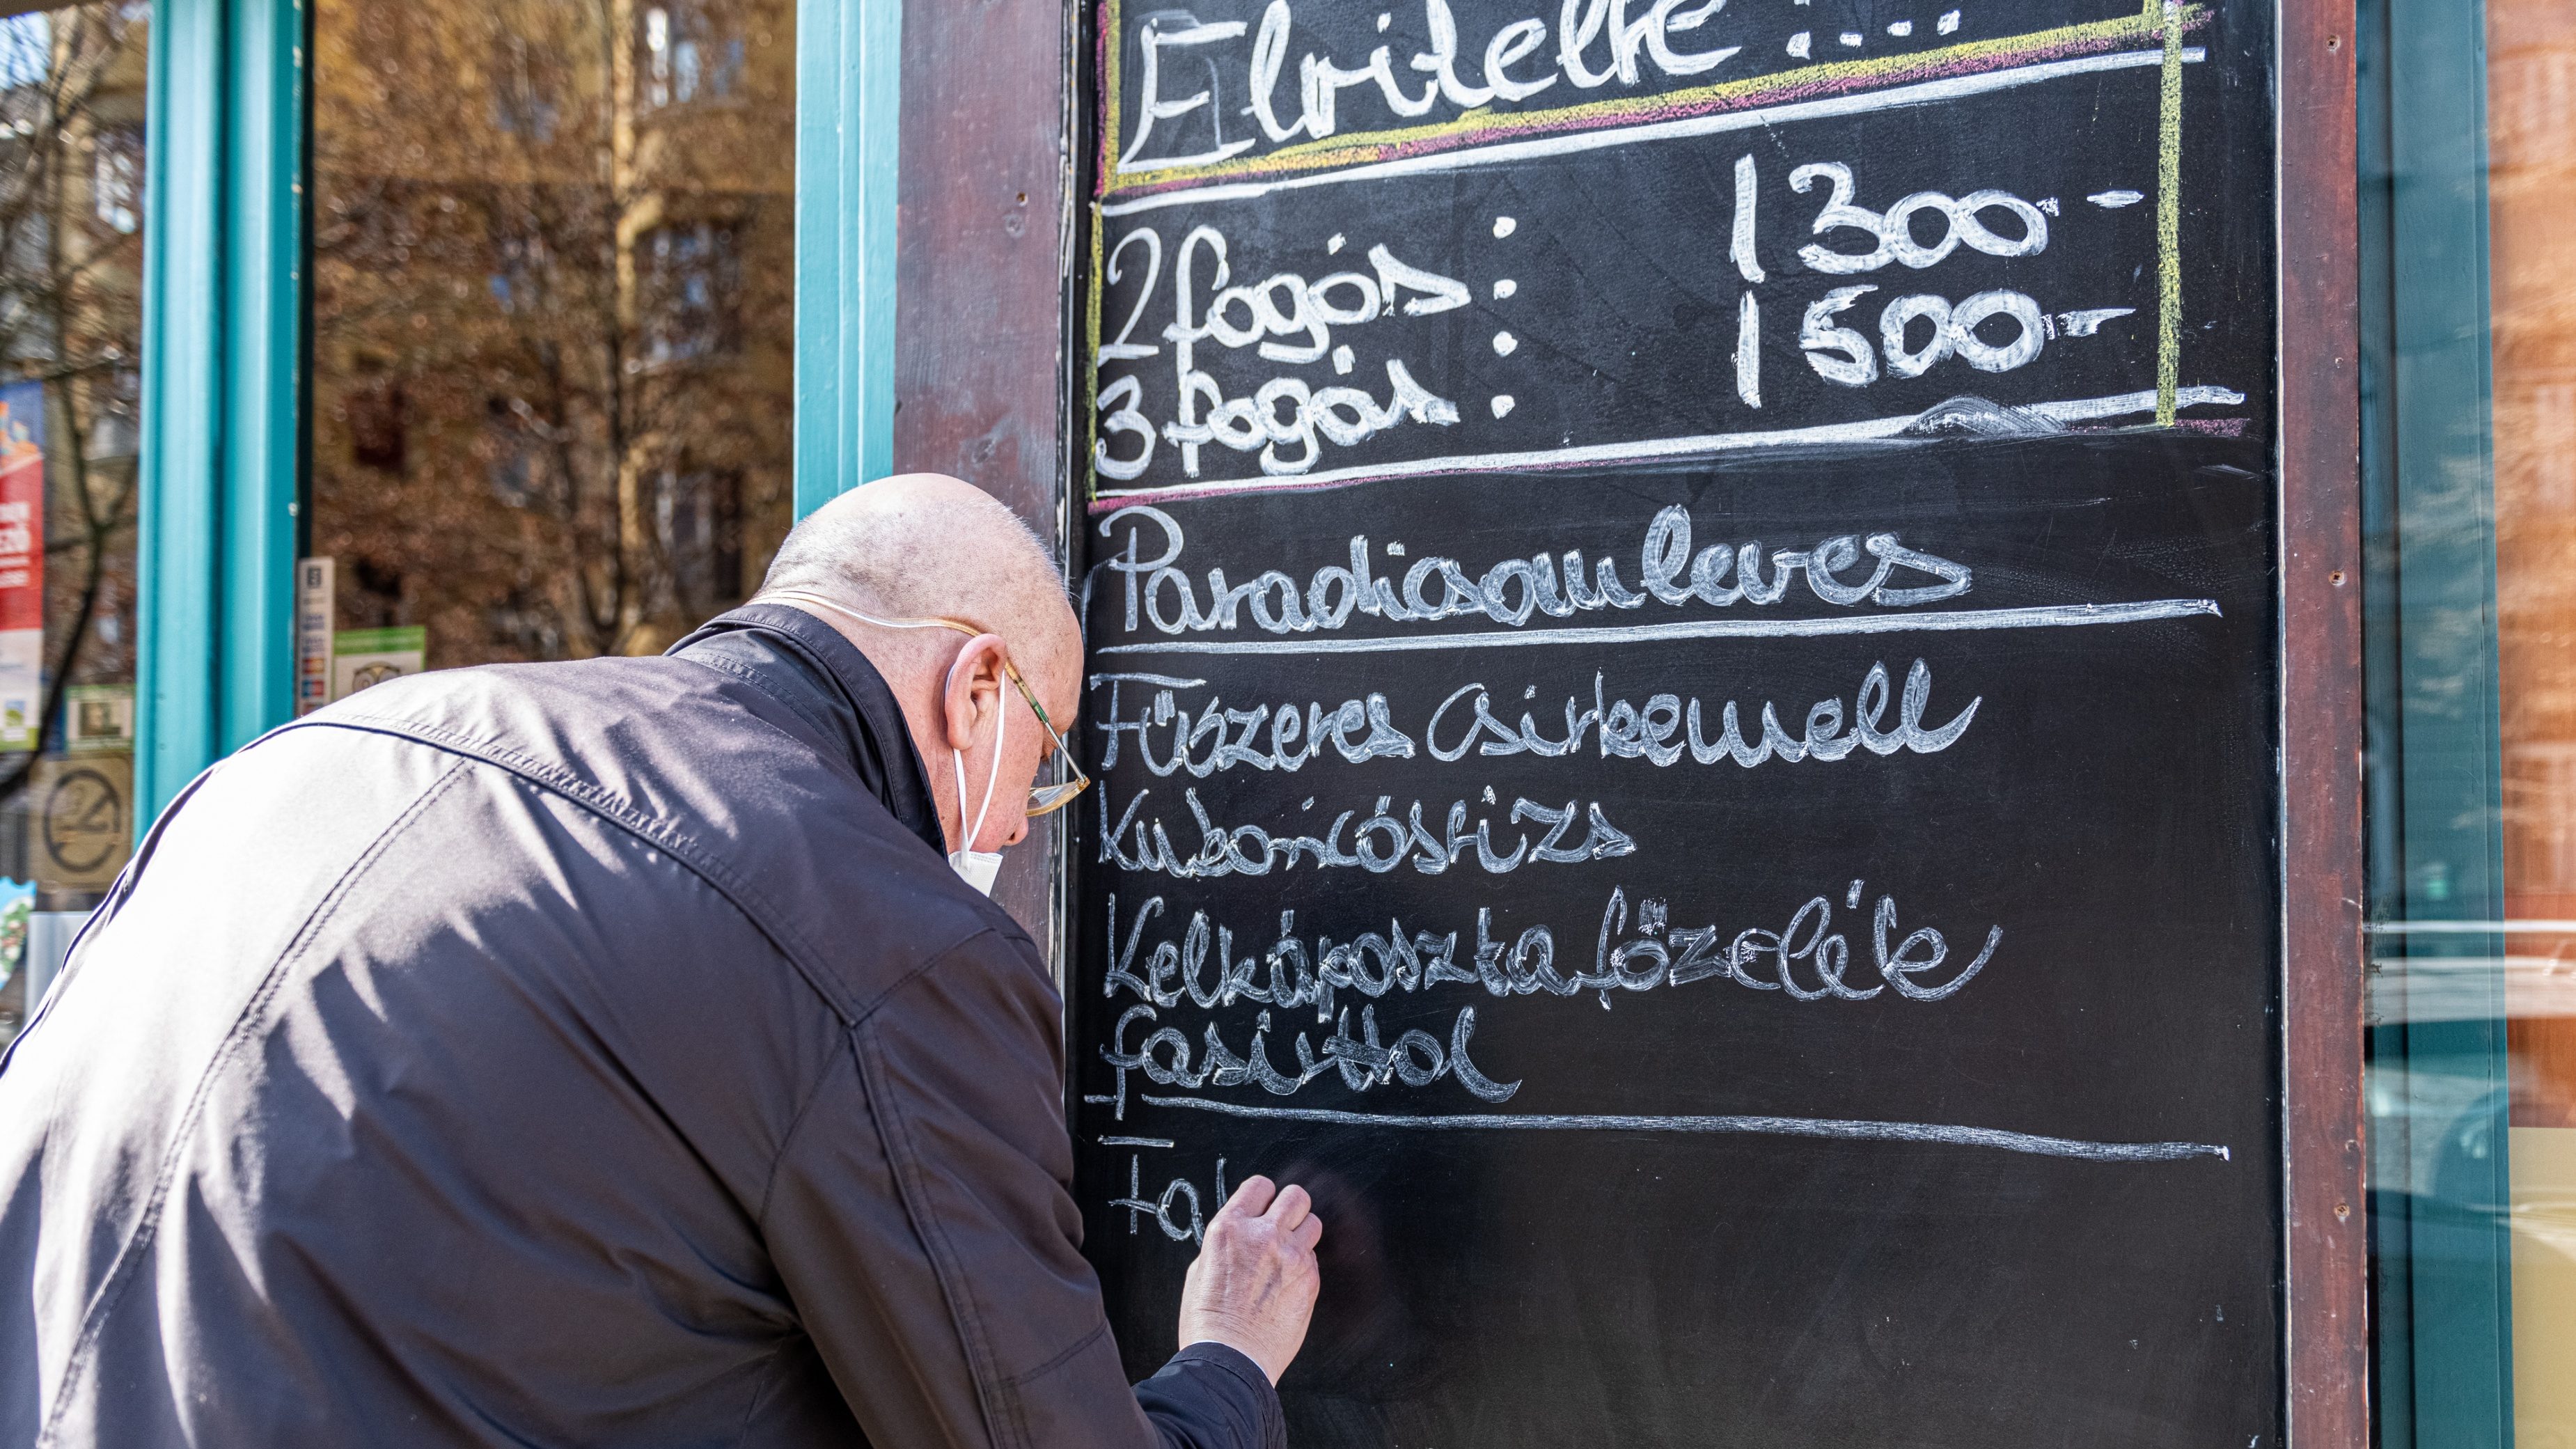 Elvitelre :...
2 fogás : 1300.-
3 fogás : 1500.-
Paradicsomleves
Fűszeres csirkemell
Kukoricás rizs
Kelkáposzta főzelék
fasírttal